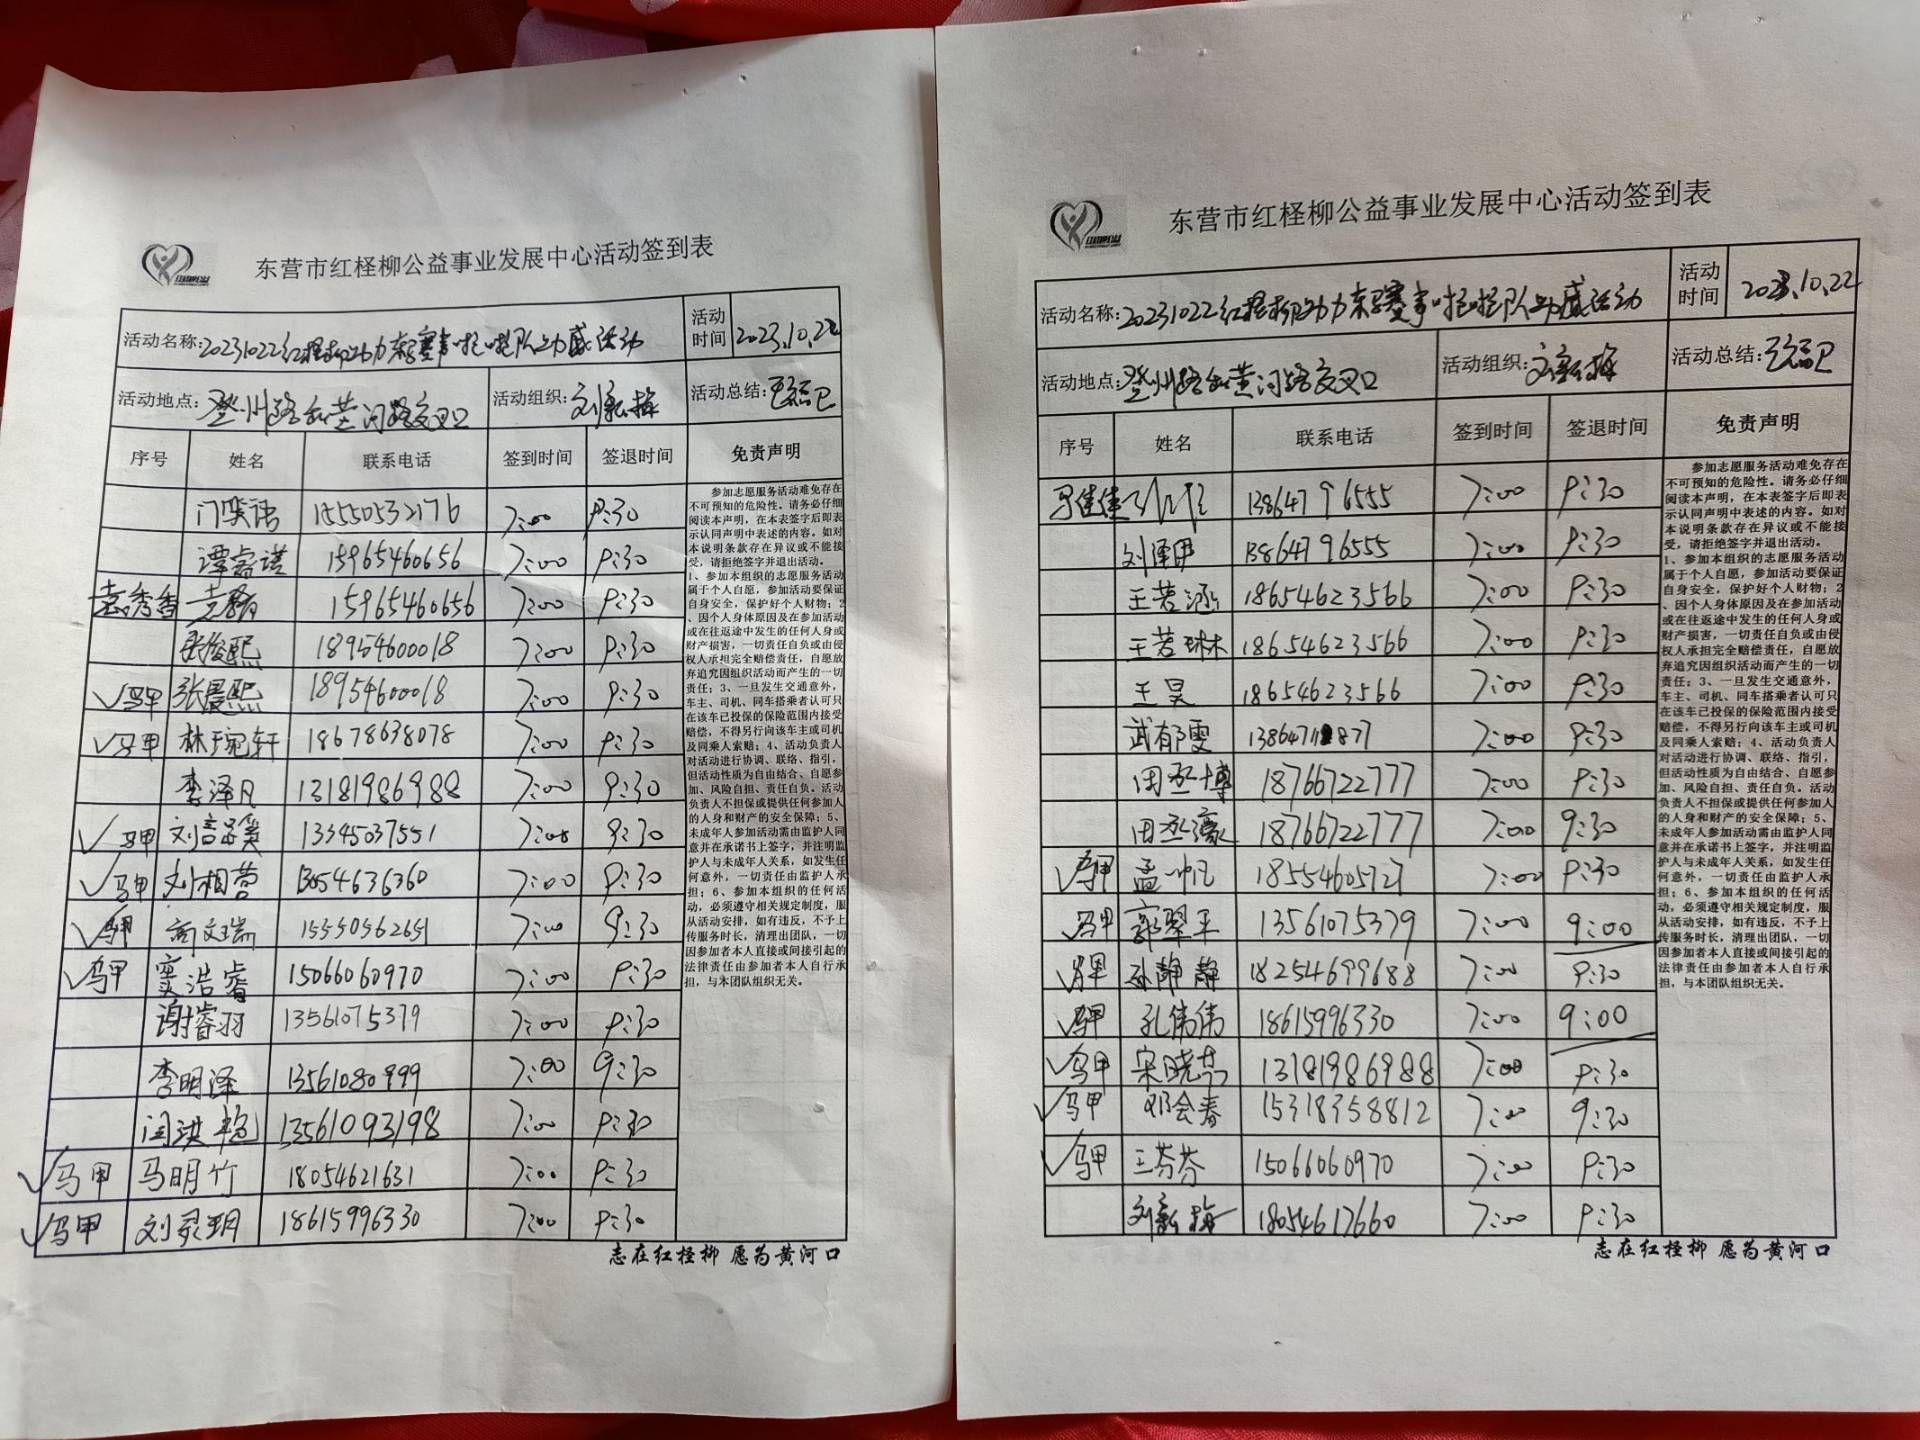 东营市红柽柳公益事业发展中心活动签到表
活动名称:20231022红柽柳助力东营赛事啦啦队助威活动 活动时间 2023.10.22
活动地点: 登州路和黄河路交叉口 活动组织: 刘新梅 活动总结:
序号 姓名 联系电话 签到时间 签退时间 免责声明
门奕语 15550532176 7:00 9:30
谭睿琪 15965460656 7:00 9:30
袁秀香 15965460656 7:00 9:30
张俊熙 18954600018 7:00 9:30
✓马甲 张晨熙 18954600018 7:00 9:30
✓马甲 林琬轩 18678638078 7:00 9:30
李泽凡 13181986988 7:00 9:30
✓马甲 13345037551 7:00 9:30
✓马甲 刘相营 13054636360 7:00 9:30
✓马甲 高文瑞 15550562651 7:00 9:30
✓马甲 窦浩睿 15066060970 7:00 9:30
谢睿羽 13561075379 7:00 9:30
李明泽 13561080999 7:00 9:30
闫洪艳 13561093198 7:00 9:30
✓马甲 马明竹 18054621631 7:00 9:30
✓马甲 刘灵玥 18615996330 7:00 9:30
参加志愿服务活动难免存在
不可预知的危险性。请务必仔细
阅读本声明，在本表签字后即表
示认同声明中表述的内容。如对
本说明条款存在异议或不能接
受，请拒绝签字并退出活动。
1、参加本组织的志愿服务活动
属于个人自愿，参加活动要保证
自身安全，保护好个人财物；2
、因个人身体原因及在参加活动
或在往返途中发生的任何人身或
财产损害，一切责任自负或由侵
权人承担完全赔偿责任，自愿放
弃追究因组织活动而产生的一切
责任；3、一旦发生交通意外，
车主、司机、同车搭乘者认可只
在该车已投保的保险范围内接受
赔偿，不得另行向该车主或司机
及同乘人索赔；4、活动负责人
对活动进行协调、联络、指引，
但活动性质为自由结合、自愿参
加、风险自担、责任自负。活动
负责人不担保或提供任何参加人
的人身和财产的安全保障；5、
未成年人参加活动需由监护人同
意并在承诺书上签字，并注明监
护人与未成年人关系，如发生任
何意外，一切责任由监护人承
担；6、参加本组织的任何活
动，必须遵守相关规定制度，服
从活动安排，如有违反，不予上
传服务时长，清理出团队，一切
因参加者本人直接或间接引起的
法律责任由参加者本人自行承
担，与本团队组织无关。
志在红柽柳 愿为黄河口
东营市红柽柳公益事业发展中心活动签到表
活动名称:20231022红柽柳助力东营赛事啦啦队助威活动 活动时间 2023.10.22
活动地点: 登州路和黄河路交叉口 活动组织: 刘新梅 活动总结:
序号 姓名 联系电话 签到时间 签退时间 免责声明
马佳佳 13864796555 7:00 9:30
13864796555 7:00 9:30
王若涵 18654623566 7:00 9:30
王若琳 18654623566 7:00 9:30
王昊 18654623566 7:00 9:30
武郁雯 7:00 9:30
田丞博 18766722777 7:00 9:30
田丞豪 18766722777 7:00 9:30
✓马甲 孟帆 18554605727 7:00 9:30
马甲 郭翠平 13561075379 7:00 9:00
马甲 孙静静 18254699688 7:00 9:30
马甲 孔伟伟 18615996330 7:00 9:00
✓马甲 宋晓燕 13181986988 7:00 9:30
✓马甲 邓会春 15318358812 7:00 9:30
✓马甲 王芬芬 15066060970 7:00 9:30
刘新梅 18054617660 7:00 9:30
参加志愿服务活动难免存在
不可预知的危险性。请务必仔细
阅读本声明，在本表签字后即表
示认同声明中表述的内容。如对
本说明条款存在异议或不能接
受，请拒绝签字并退出活动。
1、参加本组织的志愿服务活动
属于个人自愿，参加活动要保证
自身安全，保护好个人财物；2
、因个人身体原因及在参加活动
或在往返途中发生的任何人身或
财产损害，一切责任自负或由侵
权人承担完全赔偿责任，自愿放
弃追究因组织活动而产生的一切
责任；3、一旦发生交通意外，
车主、司机、同车搭乘者认可只
在该车已投保的保险范围内接受
赔偿，不得另行向该车主或司机
及同乘人索赔；4、活动负责人
对活动进行协调、联络、指引，
但活动性质为自由结合、自愿参
加、风险自担、责任自负。活动
负责人不担保或提供任何参加人
的人身和财产的安全保障；5、
未成年人参加活动需由监护人同
意并在承诺书上签字，并注明监
护人与未成年人关系，如发生任
何意外，一切责任由监护人承
担；6、参加本组织的任何活
动，必须遵守相关规定制度，服
从活动安排，如有违反，不予上
传服务时长，清理出团队，一切
因参加者本人直接或间接引起的
法律责任由参加者本人自行承
担，与本团队组织无关。
志在红柽柳 愿为黄河口